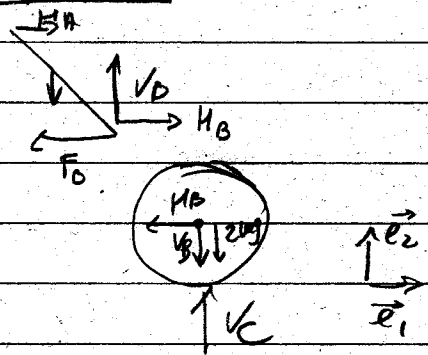 V_B
H_B
F_B
H_B
V_B 2mg
e⃗_2
e⃗_1
V_C